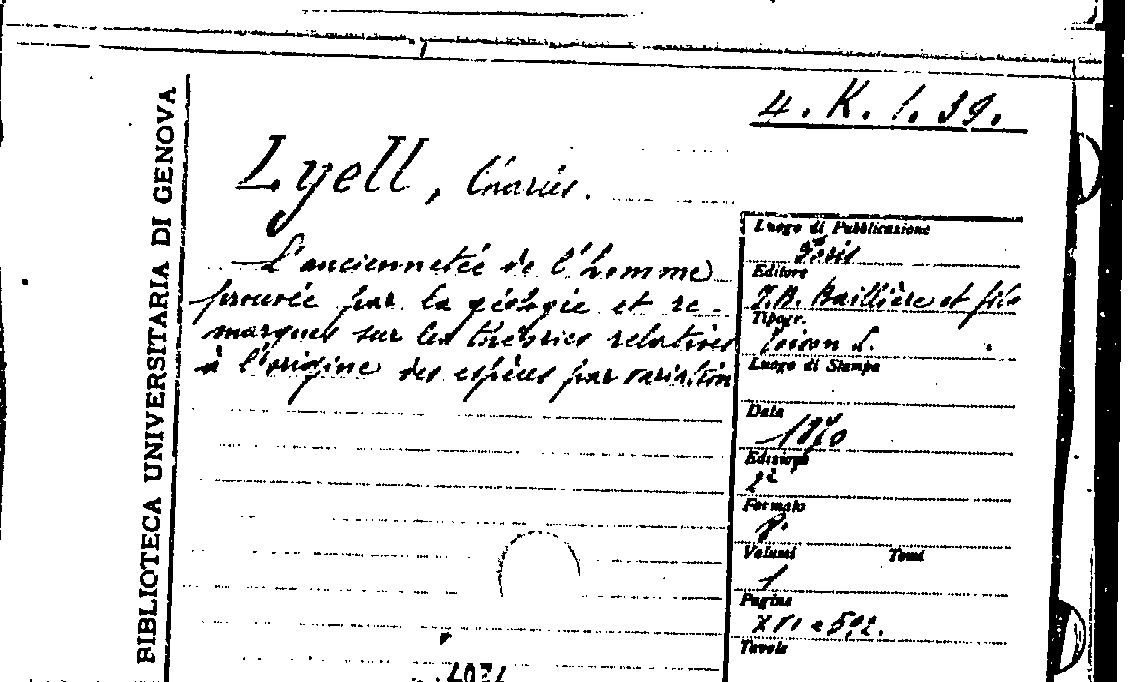 4. K. 1. 39.
BIBLIOTECA UNIVERSITARIA DI GENOVA
Lyell, Charles.
L'ancienneteé de l'homme
prouvée par la géologie et re-
marques sur les théories relatives
à l'origine des espèces par variation
Luogo di Pubblicazione
Paris
Editore
J.B. Baillière et fils
Tipogr.
Luogo di Stampa
Data
1870
Edizione
2ª
Formato
8°
Volumi Tomi
1
Pagine
XVI e 592.
Tavole